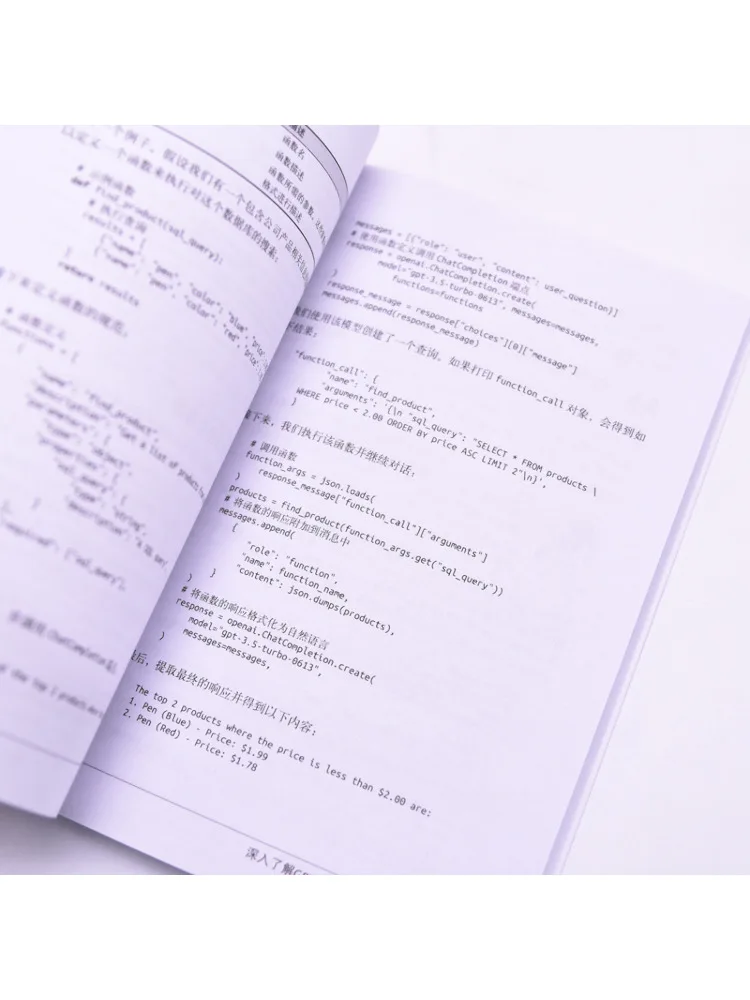 描述
函数名
函数描述
函数所需的参数,
格式进行描述
个例子,假设我们有一个包含公司产品相关信息
以定义一个函数来执行对这个数据库的搜索:
# 示例函数
def find_product(sql_query):
# 执行查询
results = [
{"name": "pen", "color": "blue", "price":
{"name": "pen", "color": "red", "price":
]
return results
# 函数定义
functions = [
{
"name": "find_product",
"description": "Get a list of products
"parameters": {
"type": "object",
"properties": {
"sql_query": {
"type": "string",
"description":
"required": ["sql_query"],
messages = [{"role": "user", "content": user_question}]
# 使用函数定义调用 ChatCompletion 端点
response = openai.ChatCompletion.create(
model="gpt-3.5-turbo-0613", messages=messages,
functions=functions
)
response_message = response["choices"][0]["message"]
messages.append(response_message)
们使用该模型创建了一个查询。如果打印 function_call 对象,会得到如
下结果:
"function_call": {
"name": "find_product",
"arguments": '{\n "sql_query": "SELECT * FROM products \
WHERE price < 2.00 ORDER BY price ASC LIMIT 2"\n}',
}
接下来,我们执行该函数并继续对话:
# 调用函数
function_args = json.loads(
response_message["function_call"]["arguments"]
)
products = find_product(function_args.get("sql_query"))
# 将函数的响应附加到消息中
messages.append(
{
"role": "function",
"name": function_name,
"content": json.dumps(products),
}
)
# 将函数的响应格式化为自然语言
response = openai.ChatCompletion.create(
model="gpt-3.5-turbo-0613",
messages=messages,
)
最后,提取最终的响应并得到以下内容:
The top 2 products where the price is less than $2.00 are:
1. Pen (Blue) - Price: $1.99
2. Pen (Red) - Price: $1.78
深入了解